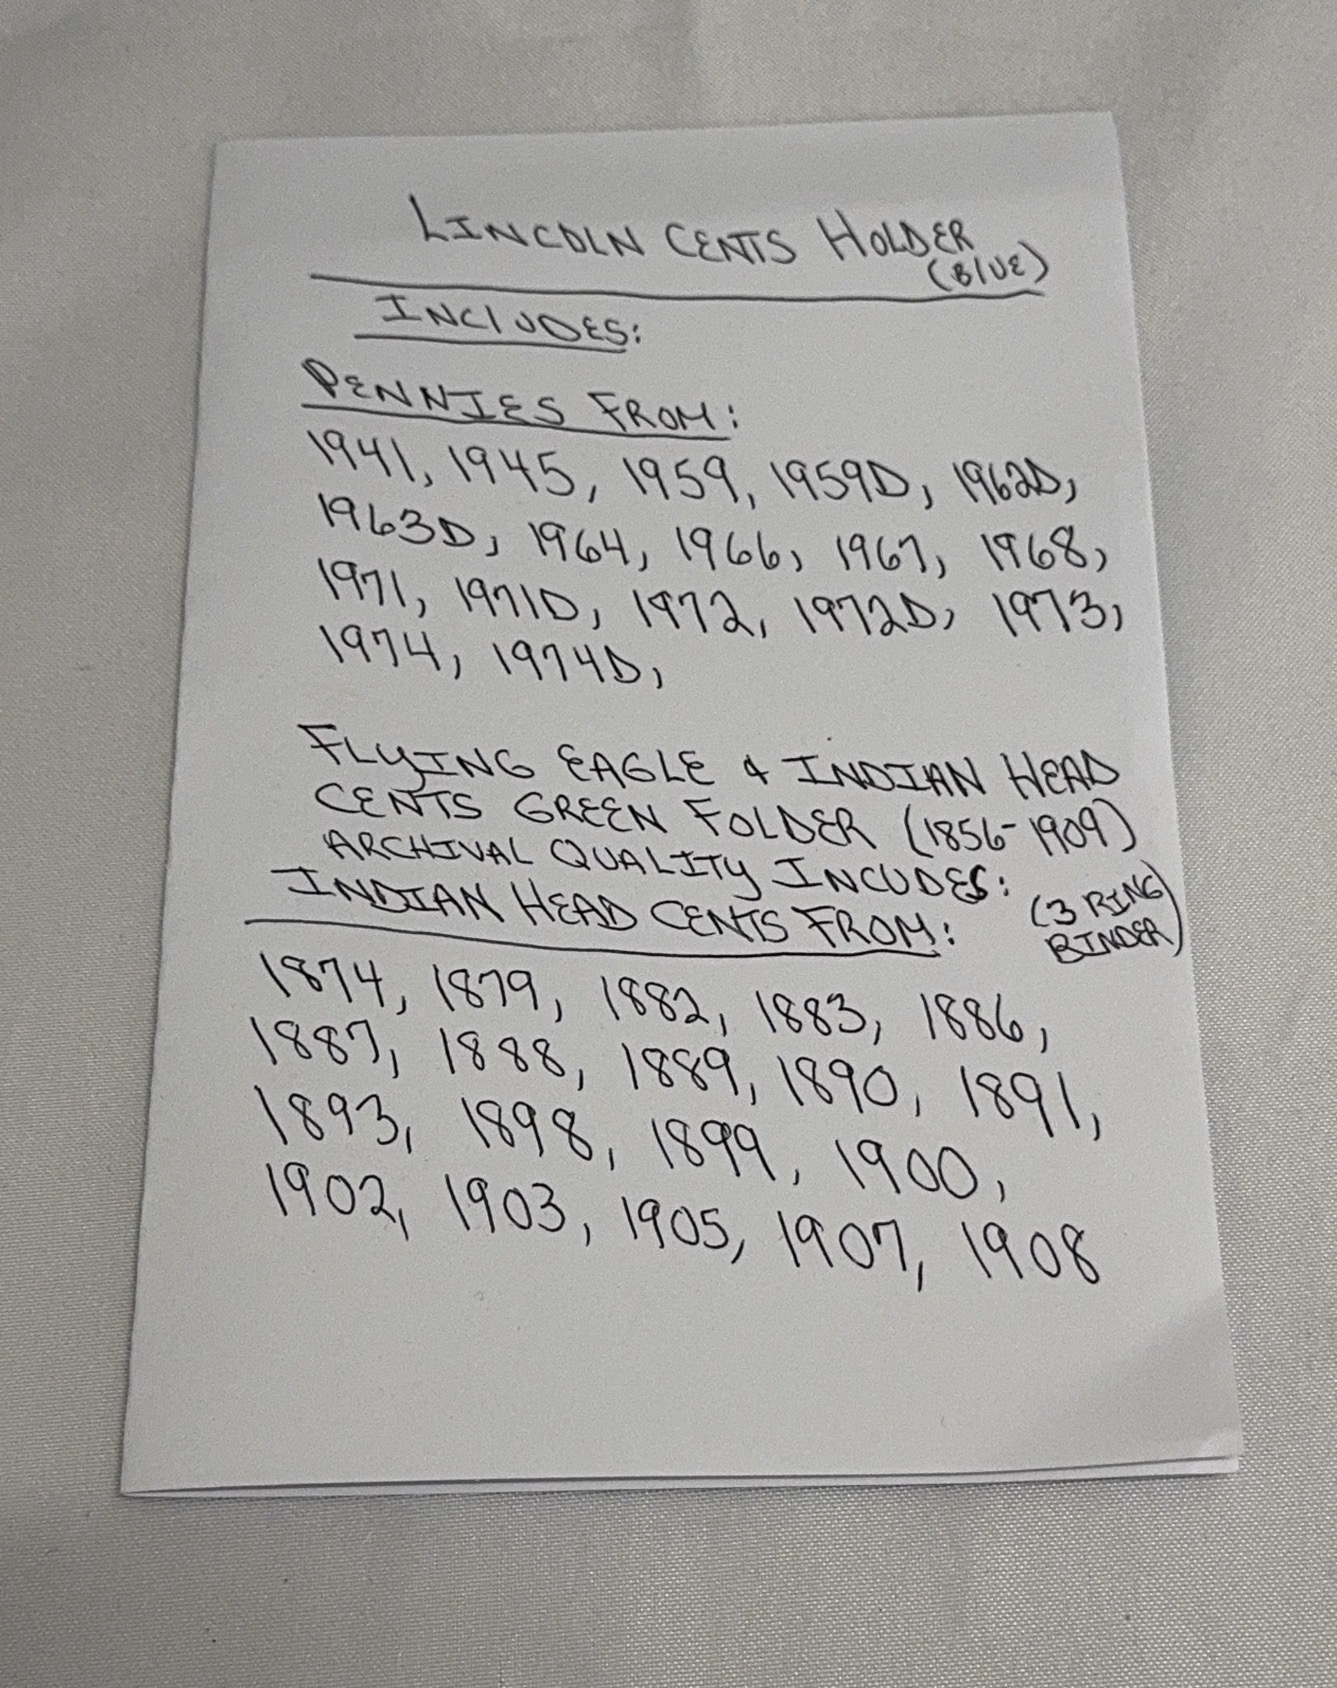 LINCOLN CENTS HOLDER
(BLUE)
INCLUDES:
PENNIES FROM:
1941, 1945, 1959, 1959D, 1962D,
1963D, 1964, 1966, 1967, 1968,
1971, 1971D, 1972, 1972D, 1973,
1974, 1974D,
FLYING EAGLE & INDIAN HEAD
CENTS GREEN FOLDER (1856-1909)
ARCHIVAL QUALITY INCUDES:
(3 RING
BINDER)
INDIAN HEAD CENTS FROM:
1874, 1879, 1882, 1883, 1886,
1887, 1888, 1889, 1890, 1891,
1893, 1898, 1899, 1900,
1902, 1903, 1905, 1907, 1908